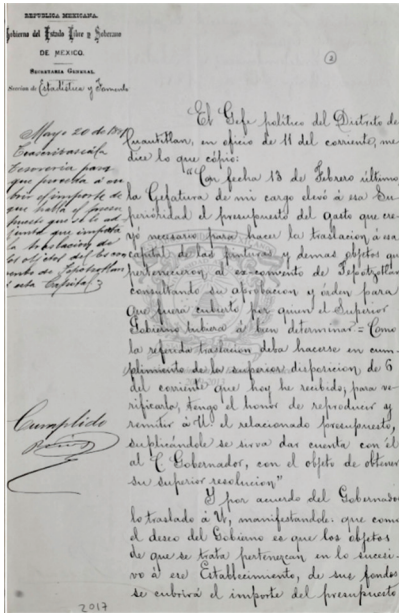 REPUBLICA MEXICANA.
Gobierno del Estado Libre y Soberano
DE MEXICO.
SECRETARIA GENERAL.
Seccion de Estadística y Fomento
2
Mayo 20 de
Transcríbase á la
Tesorería para
que proceda á cu
brir el importe de
que habla el presu
puesto que se le ad
junta que importa
la traslacion de
los objetos del
vento de Tepotzotlan
á esta Capital
Cumplido
El Gefe político del Distrito de
Cuautitlan, en oficio de 11 del corriente, me
dice lo que cópio:
"Con fecha 13 de Febrero último
la Gefatura de mi cargo elevó á esa Su-
perioridad el presupuesto del gasto que cre-
yó necesario para hacer la traslacion á esa
capital de las pinturas y demas objetos que
pertenecieron al ex-convento de Tepotzotlan
consultando su aprobacion y órden para
que fuera cubierto por quien el Superior
Gobierno tubiera á bien determinar = Como
la referida traslacion deba hacerse en cum-
plimiento de la superior disposicion de 6
del corriente que hoy he recibido, para ve-
rificarla, tengo el honor de reproducir y
remitir á U. el relacionado presupuesto,
suplicándole se sirva dar cuenta con él
al C. Gobernador, con el objeto de obtener
su superior resolucion"
Y por acuerdo del Gobernador
lo traslado á U, manifestandole: que como
el deseo del Gobierno es que los objetos
de que se trata pertenezcan en lo sucesi-
vo á ese Establecimiento, de sus fondos
se cubrirá el importe del presupuesto
2017